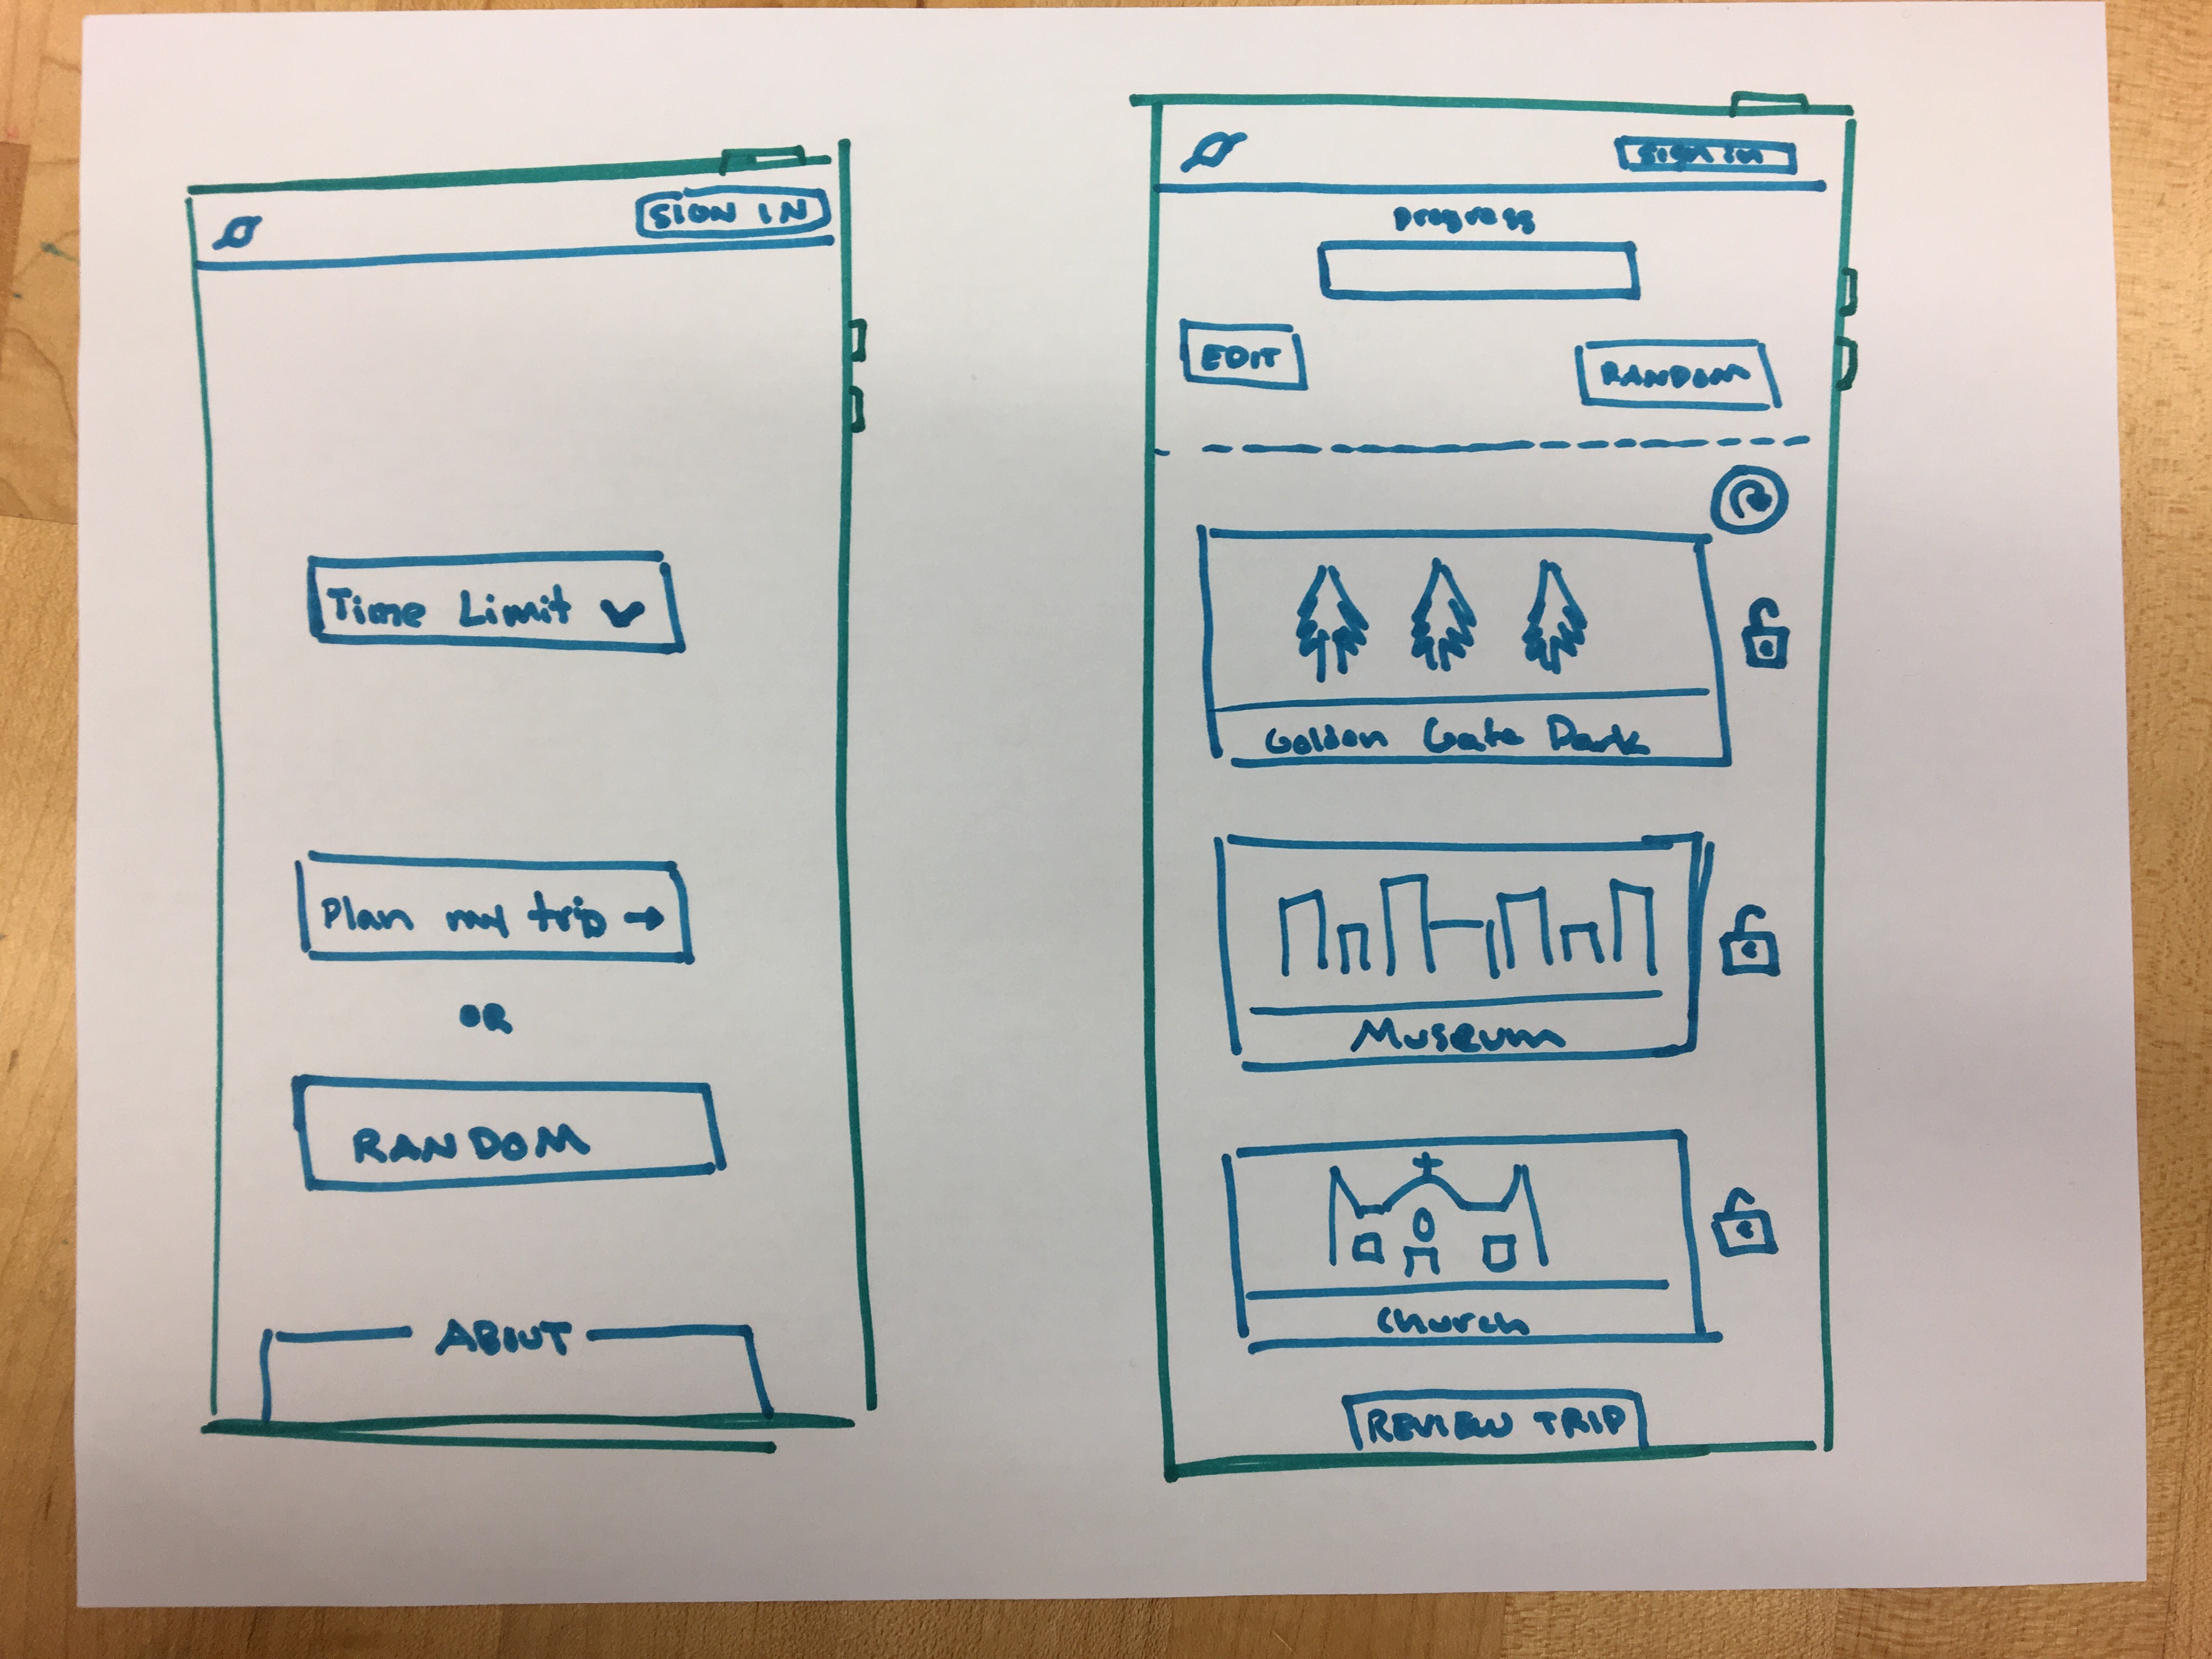 SIGN IN
Time Limit
Plan my trip →
OR
RANDOM
ABOUT
sign in
progress
EDIT
RANDOM
Golden Gate Park
Museum
Church
REVIEW TRIP